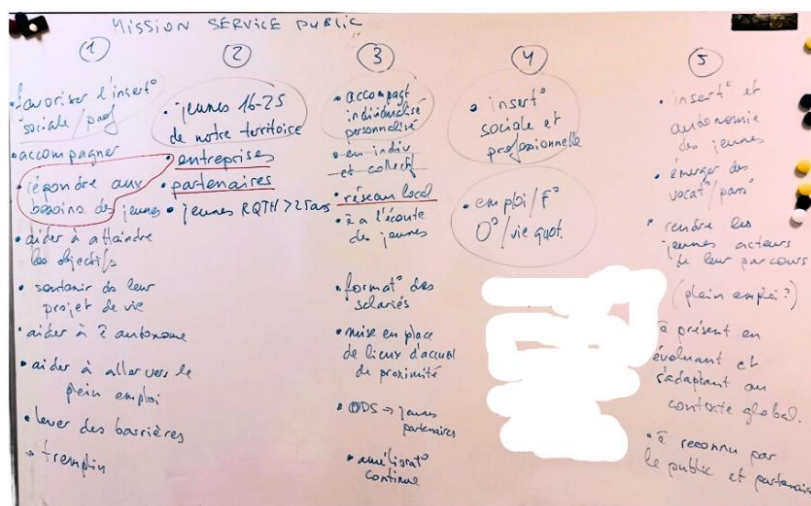 MISSION SERVICE PUBLIC
1
• favoriser l'insert°
sociale / prof
• accompagner
• répondre aux
besoins des jeunes
• aider à atteindre
les objectifs
• soutenir ds leur
projet de vie
• aider à ê autonome
• aider à aller vers le
plein emploi
• lever des barrières
→ tremplin
2
• jeunes 16-25
de notre territoire
• entreprises
• partenaires
• jeunes RQTH > 25 ans
3
• accompagt
individualisé
personnalisé
• en indiv
et collectif
• réseau local
• ê à l'écoute
des jeunes
• format° des
salariés
• mise en place
de lieux d'accueil
de proximité
• ODS → jeunes
partenaires
• améliorat°
continue
4
• insert°
sociale et
professionnelle
• emploi / F°
O° / vie quot.
5
• insert° et
autonomie
des jeunes
• émerger des
vocat° / pass°
• rendre les
jeunes acteurs
de leur parcours
(plein emploi ?)
ê présent en
évoluant et
s'adaptant au
contexte global.
• ê reconnu par
le public et partenaires